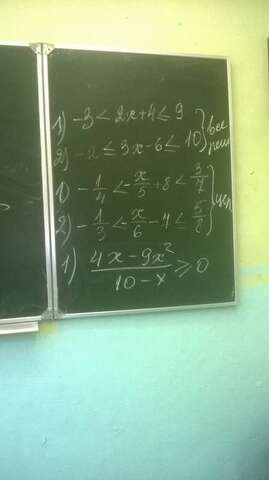 1) -3 < 2x+4 ≤ 9
2) -2 ≤ 3x-6 ≤ 10 } все реш
1) -1/4 < -x/5 + 8 < 3/7
2) -1/3 < x/6 - 4 ≤ 5/8 } цел
1) (4x-9x²)/(10-x) ≥ 0